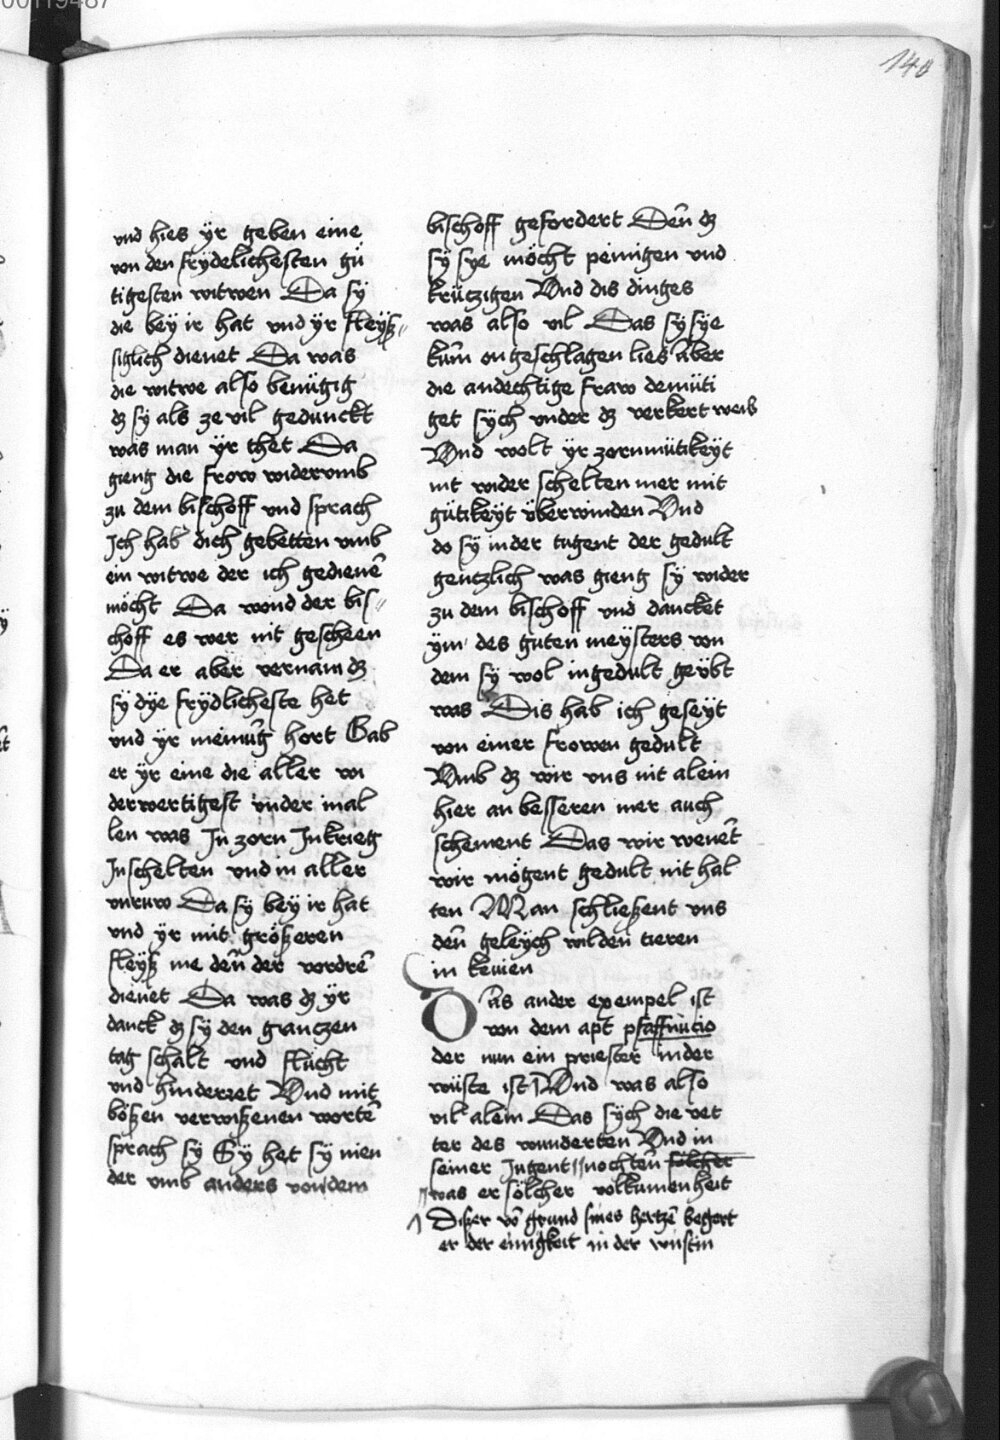 140
und hies yr geben eine
von den frydelichesten gu
tigesten witwen Da sy
die bey ir hat und yr fleyß„
siglich dienet Da was
die witwe also benügig
dz sy als ze vil gedunckt
was man yr thet Da
gieng die frow widerumb
zu dem bischoff und sprach
Ich hab dich gebetten umb
ein witwe der ich gedienē
möcht Da wond der bis„
choff es wer nit gescheen
Da er aber vernam dz
sy dye frydlicheste het
und yr meinūg hort Gab
er yr eine die aller wi
derwertigest under inal
len was In zorn In krieg
In schelten und in aller
unruw Da sy bey ir hat
und yr mit größeren
fleyß me deñ der vordrē
dienet Da was dz yr
danck dz sy den granczen
tag schalt und flücht
und hinderret Und mit
bößen verwißenen wortē
sprach sy Sy het sy nien
der umb anders von dem
bischoff gefordert Deñ dz
sy sye möcht peinigen und
krüczigen Und dis dinges
was also vil Das sy sye
kum̄ on geschlagen lies aber
die andechtige fraw demüti
get sych under dz verkert weib
Und wolt yr zornmütikeyt
nit wider schelten mer mit
gütikeyt überwinden Und
do sy in der tugent der gedult
genczlich was gieng sy wider
zu dem bischoff und dancket
ym des guten meysters von
dem sy wol in gedult geybt
was Dis hab ich geseyt
von einer frowen gedult
Umb dz wir uns nit alein
hier an besseren mer auch
schement Das wir wenēt
wir mögent gedult nit hal
ten Man schließent uns
deñ geleych wilden tieren
in kevien
Das ander exempel ist
von dem apt pfaffnucio
der nun ein priester in der
wüste ist Und was also
vil alein Das sych die vet
ter des wunderten Und in
seiner Jugent„nochteñ sölcher
„was er sölcher volkumenheit
Dißer vō grund sines hertzē begert
er der einigkeit in der wüstin